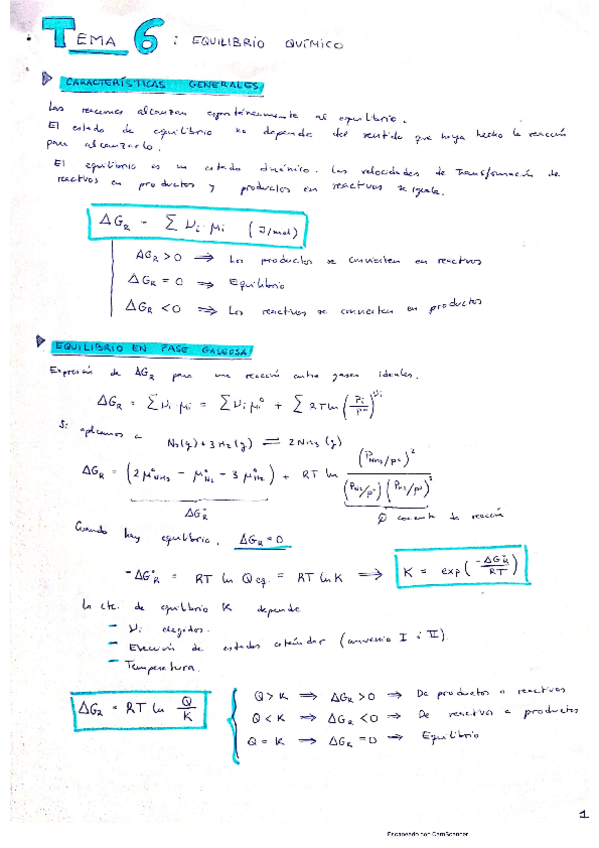 TEMA 6: EQUILIBRIO QUÍMICO
CARACTERÍSTICAS GENERALES
Las reacciones alcanzan espontáneamente el equilibrio.
El estado de equilibrio no depende del sentido que haya hecho la reacción
para alcanzarlo.
El equilibrio es un estado dinámico. Las velocidades de transformación de
reactivos en productos y productos en reactivos se iguala.
ΔG_R = Σ ν_i · μ_i (J/mol)
ΔG_R > 0 ⟹ Los productos se convierten en reactivos
ΔG_R = 0 ⟹ Equilibrio
ΔG_R < 0 ⟹ Los reactivos se convierten en productos
EQUILIBRIO EN FASE GASEOSA
Expresión de ΔG_R para una reacción entre gases ideales.
ΔG_R = Σ ν_i μ_i = Σ ν_i μ_i° + Σ RT ln (P_i/P°)^ν_i
Si aplicamos a N₂(g) + 3H₂(g) ⇌ 2NH₃(g)
ΔG_R = (2μ°_NH₃ − μ°_N₂ − 3μ°_H₂) + RT ln (P_NH₃/P°)² / (P_N₂/P°)(P_H₂/P°)³
ΔG°_R
Q cociente de reacción
Cuando hay equilibrio, ΔG_R = 0
−ΔG°_R = RT ln Q eq. = RT ln K ⟹ K = exp(−ΔG°_R/RT)
La cte. de equilibrio K depende
– ν_i elegidos.
– Elección de estados estándar (convenio I o II).
– Temperatura.
ΔG_R = RT ln Q/K
Q > K ⟹ ΔG_R > 0 ⟹ De productos a reactivos
Q < K ⟹ ΔG_R < 0 ⟹ De reactivos a productos
Q = K ⟹ ΔG_R = 0 ⟹ Equilibrio
1
Escaneado con CamScanner